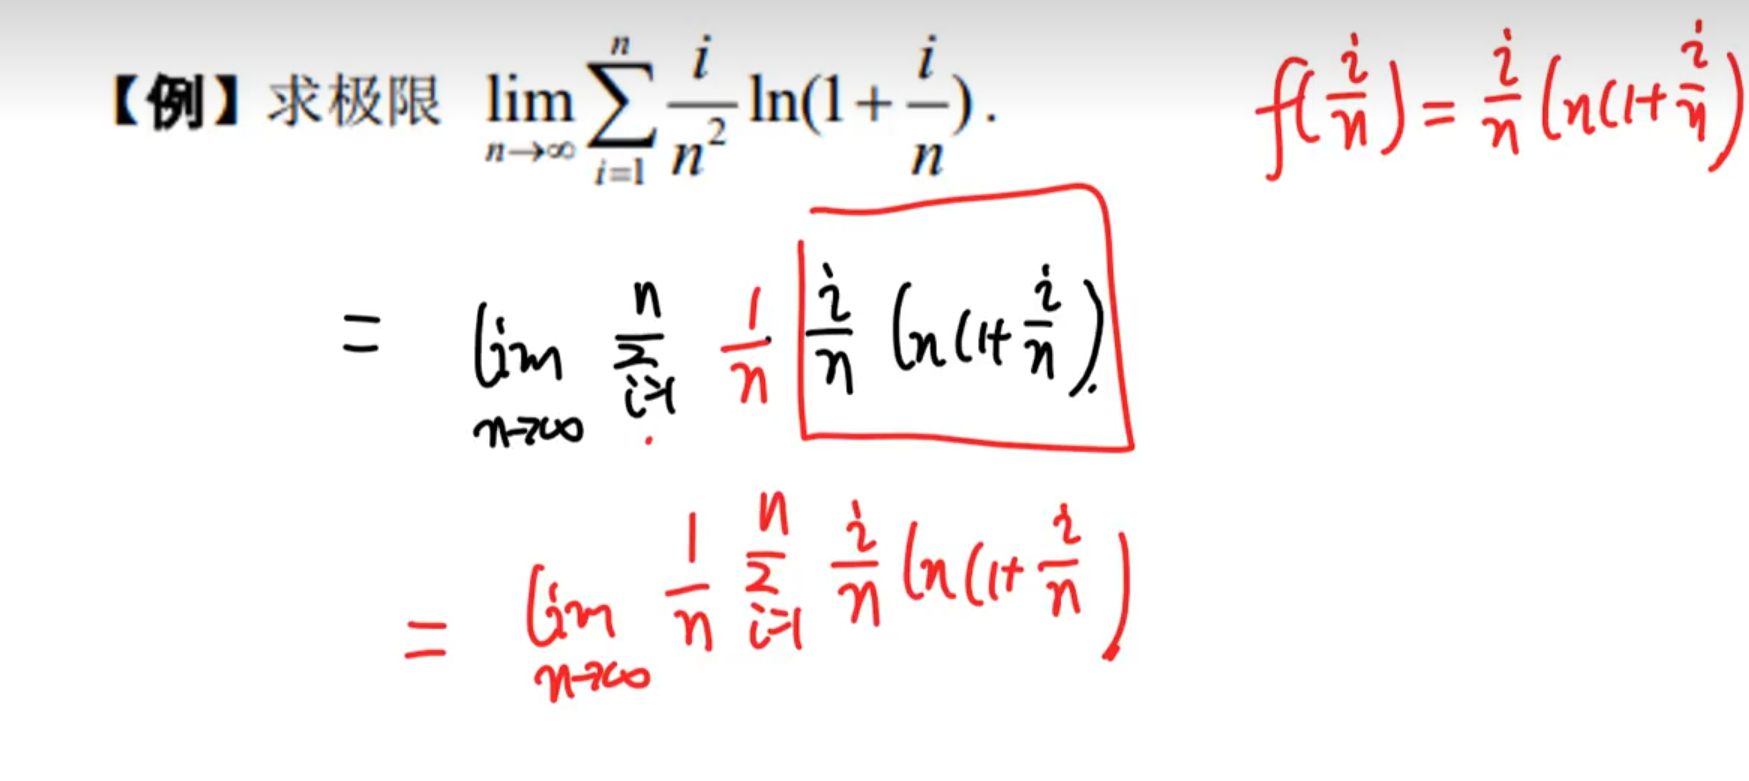 【例】求极限 lim_{n→∞} ∑_{i=1}^{n} i/n² ln(1+i/n).
f(i/n) = i/n ln(1+i/n)
= lim_{n→∞} ∑_{i=1}^{n} 1/n · i/n ln(1+i/n).
= lim_{n→∞} 1/n ∑_{i=1}^{n} i/n ln(1+i/n)